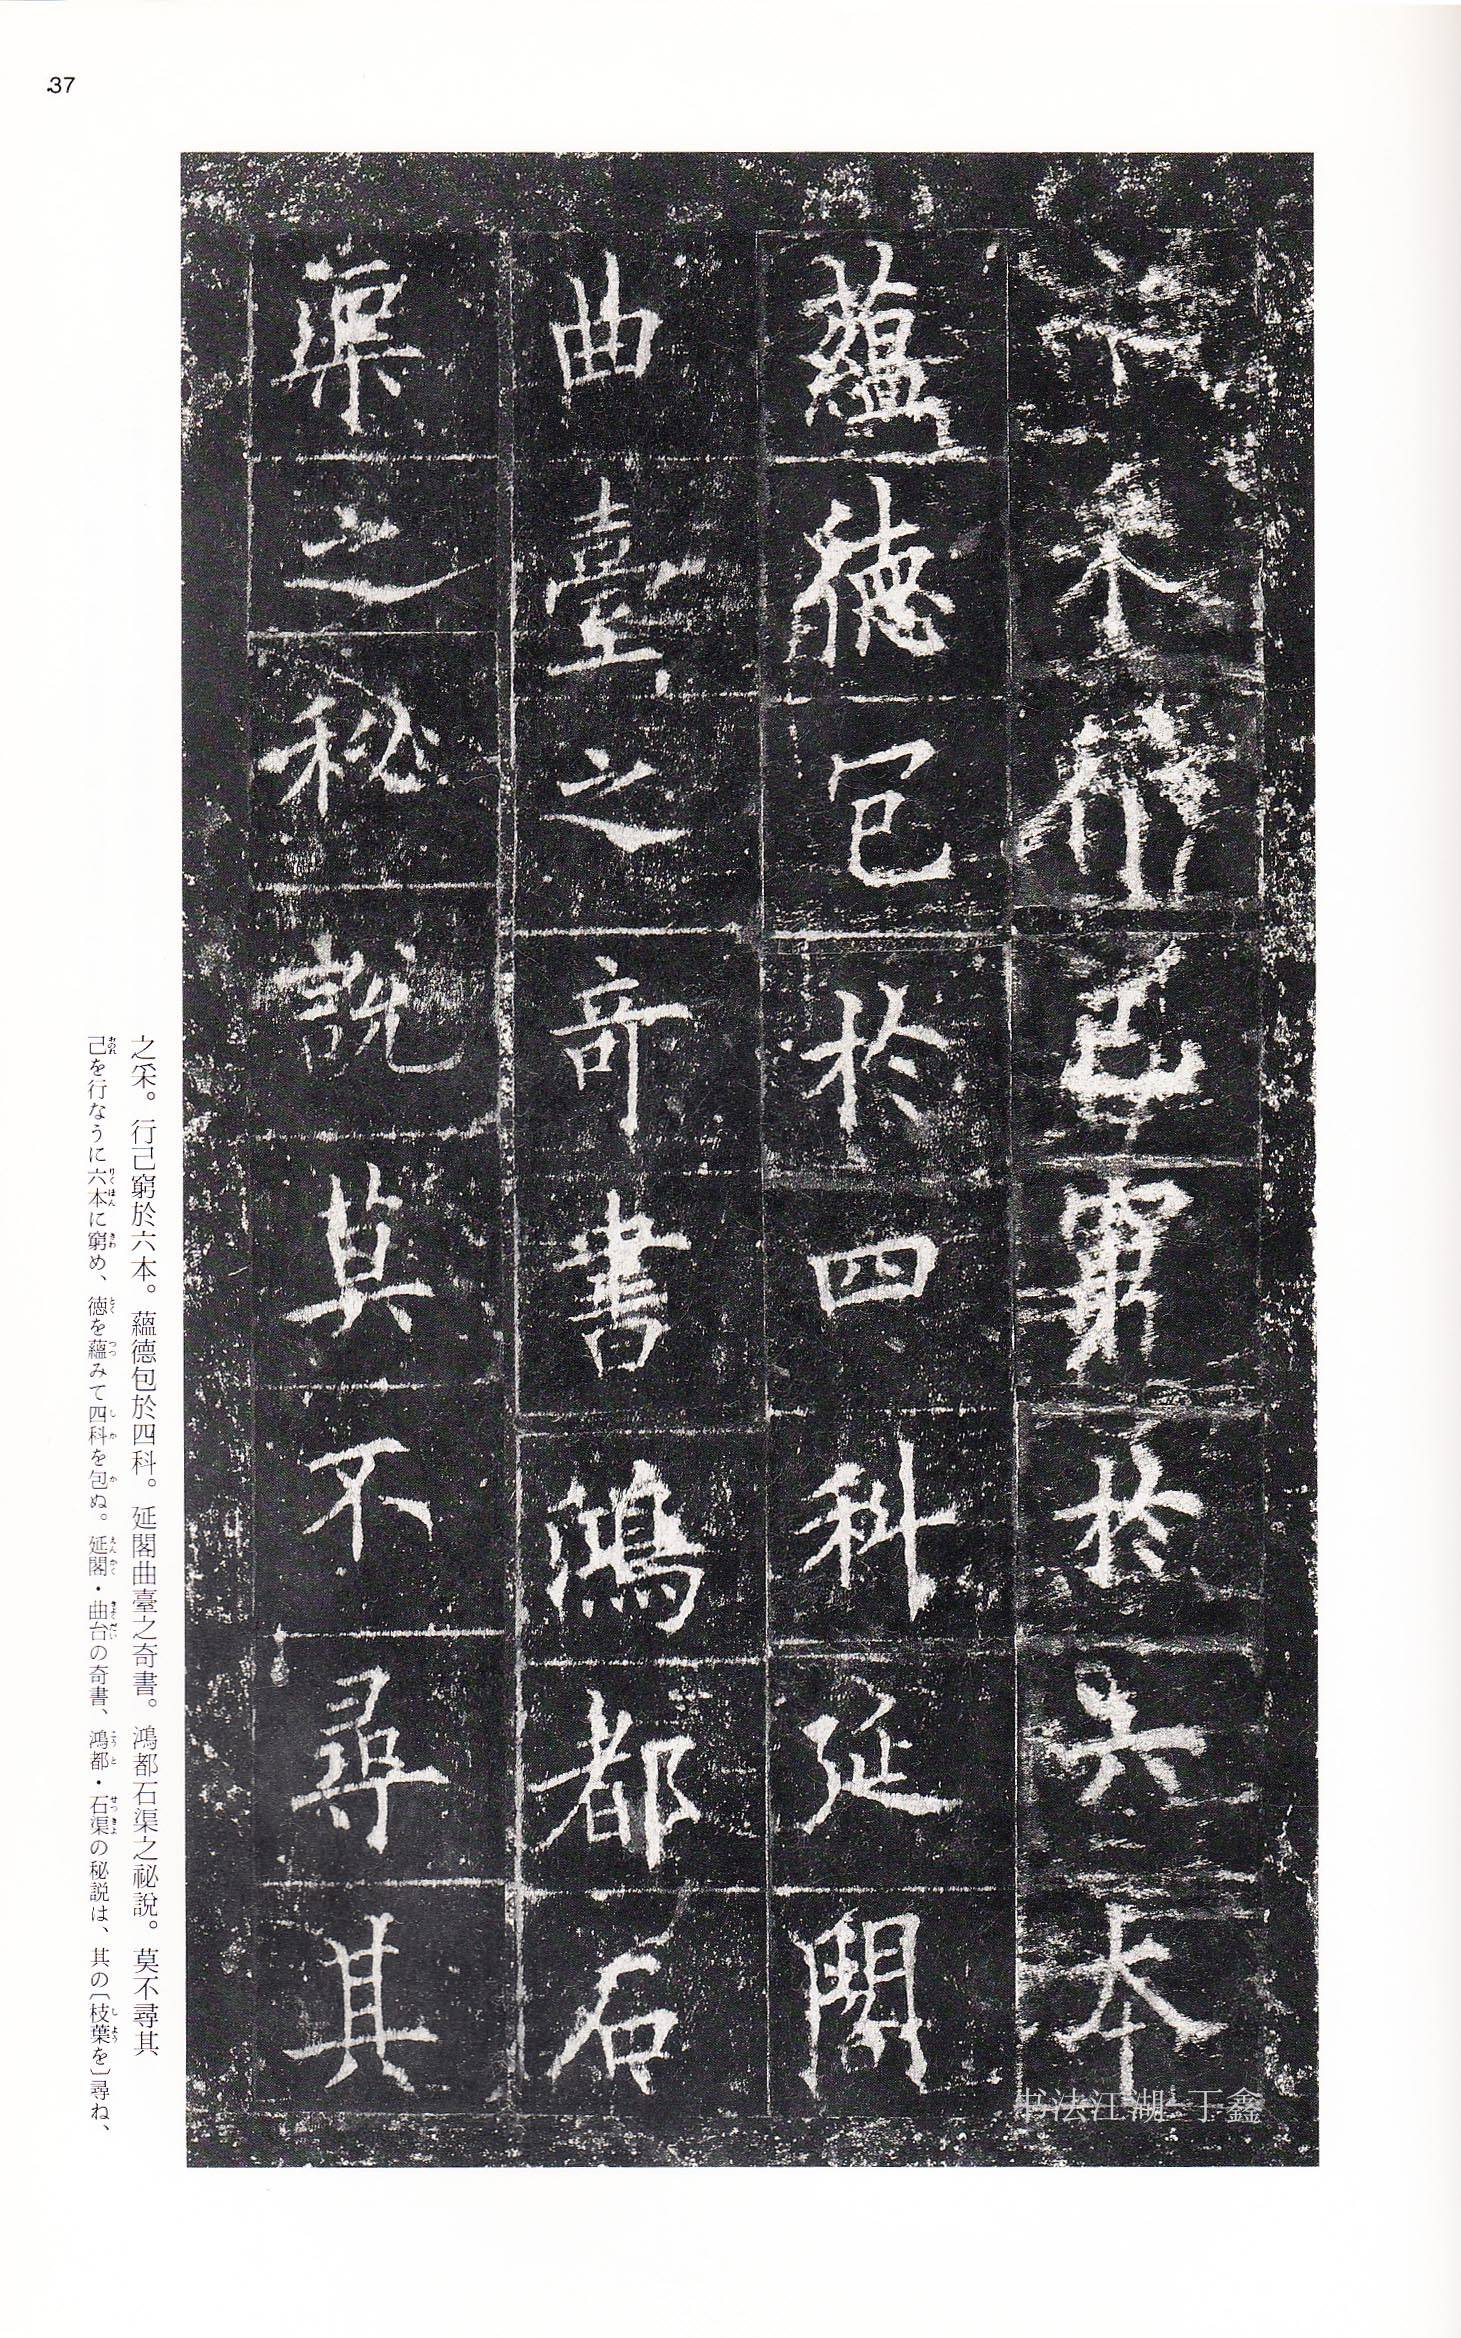 37
之采行己窮於六本
蘊德包於四科延閣
曲臺之奇書鴻都石
渠之秘說莫不尋其
之采。行己窮於六本。蘊德包於四科。延閣曲臺之奇書。鴻都石渠之祕說。莫不尋其
己を行なうに六本に窮め、徳を蘊みて四科を包ぬ。延閣・曲台の奇書、鴻都・石渠の秘説は、其の〔枝葉を〕尋ね、
书法江湖 丁鑫